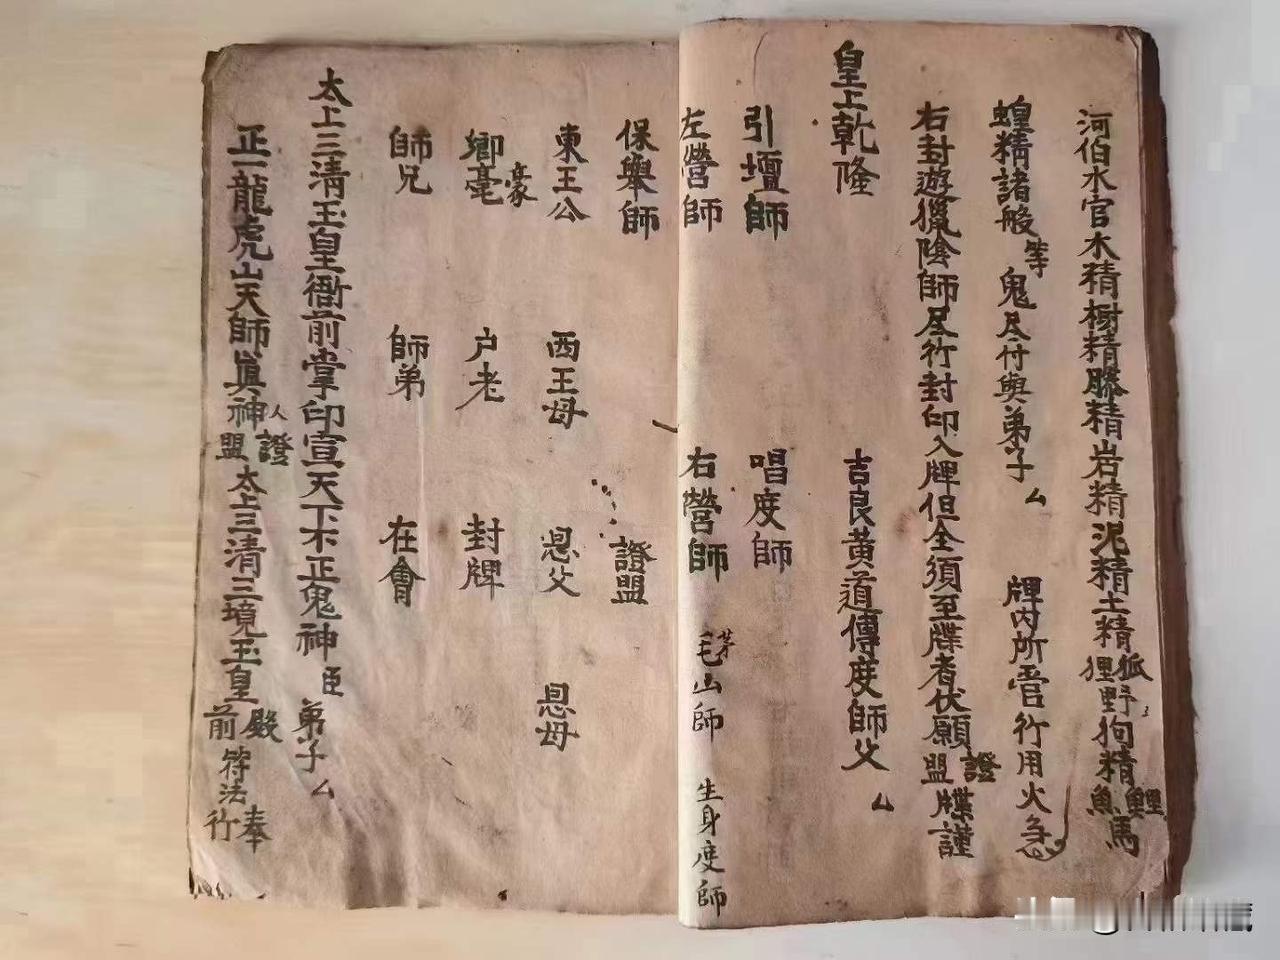 河伯水官木精樹精藤精岩精泥精土精狐狸野狗精鯉魚馬
蝗精諸般等鬼尽付與弟子厶 牌內所管行用火急
右封遊獵陰師尽行封印入牌但全須至牒者伏願證盟牒謹
皇上乾隆 吉良黃道傳度師父厶
引壇師 唱度師
左營師 右營師 毛茅山師 生身度師
保舉師 證盟
東王公 西王母 恩父 恩母
鄉毫豪 户老 封牌
師兄 師弟 在會
太上三清玉皇衙前掌印宣天下不正鬼神臣弟子厶
正一龍虎山天師眞神人證盟太上三清三境玉皇殿前符法奉行